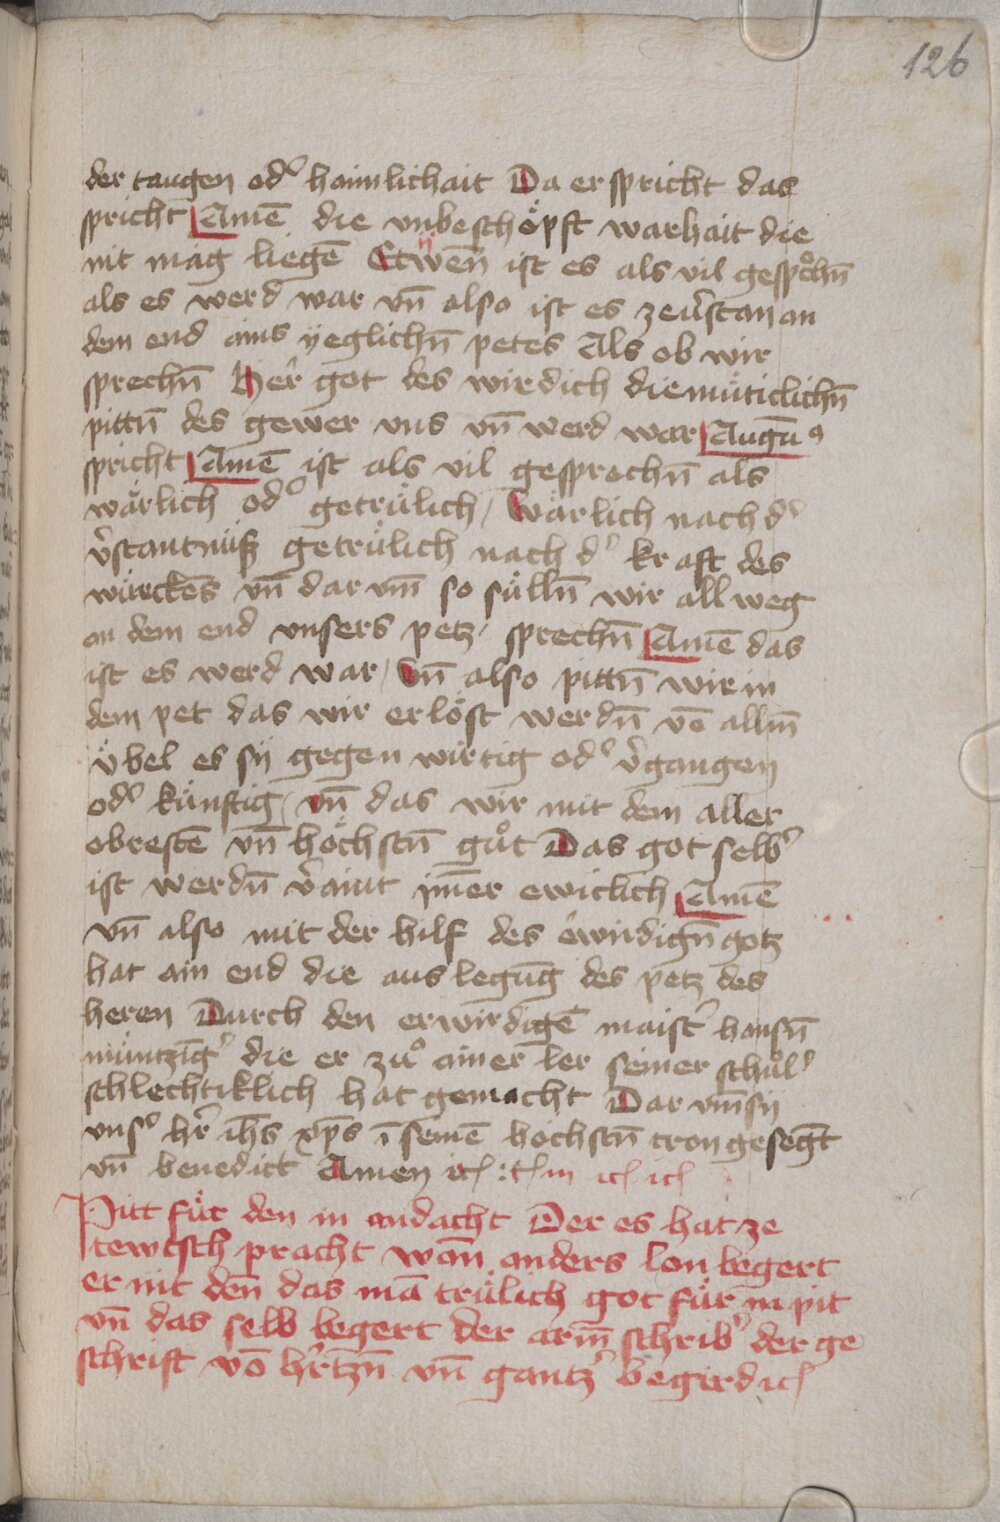 126
der taugen odˀ haimlichait Da er spricht das
spricht Amē die vnbeschöpft warhait die
nit mag liegē Etwen̄ ist es als vil gespͦchn̄
als es werd war vn̄ also ist es zeùˀstan an
dem end ains yeglichn̄ petes Als ob wir
sprechn̄ Herˀ got des wir dich diemüticlichn̄
pittn̄ des gewer vns vn̄ werd war Augꝰ
spricht Amē ist als vil gesprochn̄ als
wärlich odˀ getrülich / Wärlich nach dˀ
v̄stantnüß getrülich nach dˀ kraft des
würckēs vn̄ dar vm̄ so sülln̄ wir allweg
an dem end vnsers petz / sprechn̄ Amē das
ist es werd war / Vn̄ also pittn̄ wir in
dem pet das wir erlöst werdn̄ vō alln̄
v̈bel es sÿ gegenwirtig odˀ v̄gangen
odˀ künftig / vn̄ das wir mit dem aller
obrestē vn̄ höchstn̄ gůt Das got selbˀ
ist werdn̄ v̄aint im̄er ewiclich Amē
vn̄ also mit der hilf des erwirdign̄ gotz
hat ain end die auslegūg des petz des
heren Durch den erwirdigē maistˀ hansn̄
müntzīgˀ die er zů ainer ler seiner schůlˀ
schlechtiklich hat gemacht Dar vm̄ sÿ
vnsˀ hˀr ih̄s xp̄s ī seinē höchstn̄ tron gesegt̄
vn̄ benedict Amen ꝛcꝭ
Pitt für den in andacht Der es hat ze
tewtsch pracht wan̄ anders lon begert
er nit den̄ das mā trülich got für in pit
vn̄ das selb begert der arm̄ schribˀ der ge
schrift vō hˀrtzn̄ vn̄ gantzˀ begird ꝛcꝭ